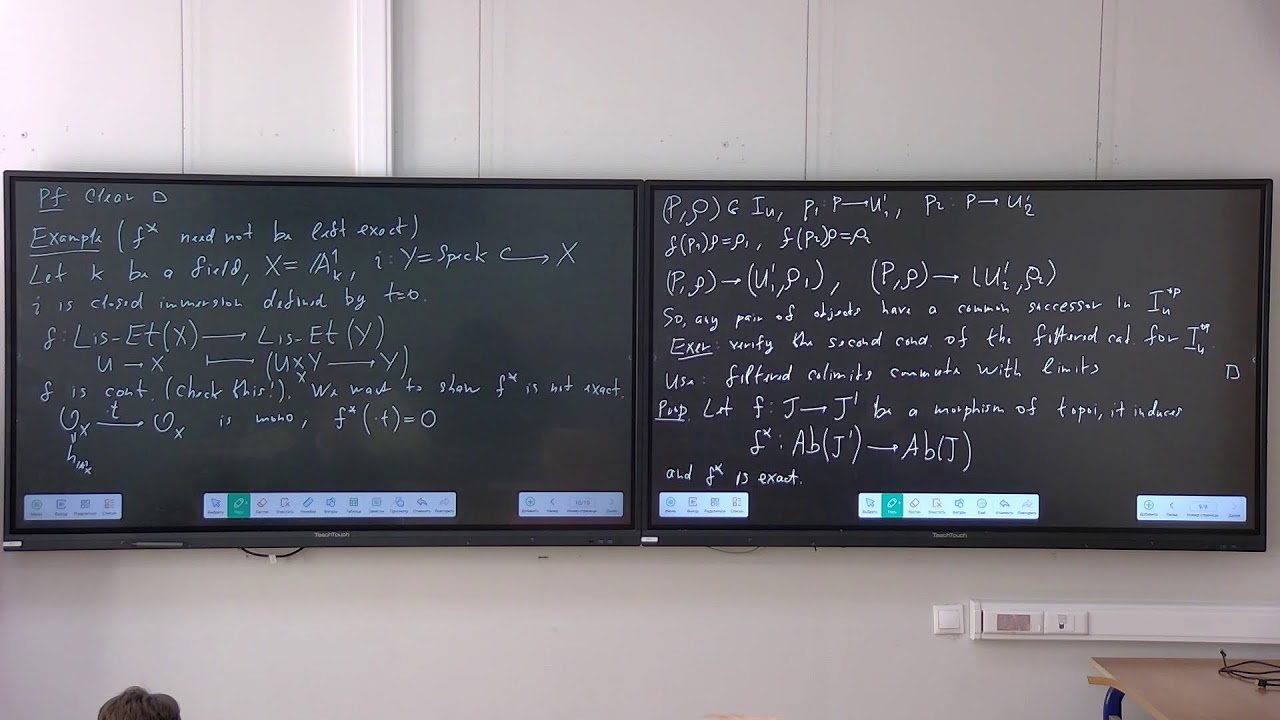 Pf. Clear □
Example (f* need not be left exact)
Let k be a field, X = 𝔸¹_k, i: Y = Spec k ↪ X
i is closed immersion defined by t=0.
f: Lis-Et(X) ⟶ Lis-Et(Y)
U → X ⟼ (U ×_X Y ⟶ Y)
f is cont. (check this!). We want to show f* is not exact.
𝒪_X —·t→ 𝒪_X is mono, f*(·t)=0
h_{𝔸¹_X}
(P,ρ) ∈ I_u, p₁: P → U'₁, p₂: P → U'₂
f(p₁)ρ=ρ₁, f(p₂)ρ=ρ₂
(P,ρ) → (U'₁,ρ₁), (P,ρ) → (U'₂,ρ₂)
So, any pair of objects have a common successor in I_u^op
Exer: verify the second cond. of the filtered cat. for I_u^op
Use: filtered colimits commute with limits □
Prop. Let f: J → J' be a morphism of topoi, it induces
f*: Ab(J') → Ab(J)
and f* is exact.
TeachTouch
TeachTouch